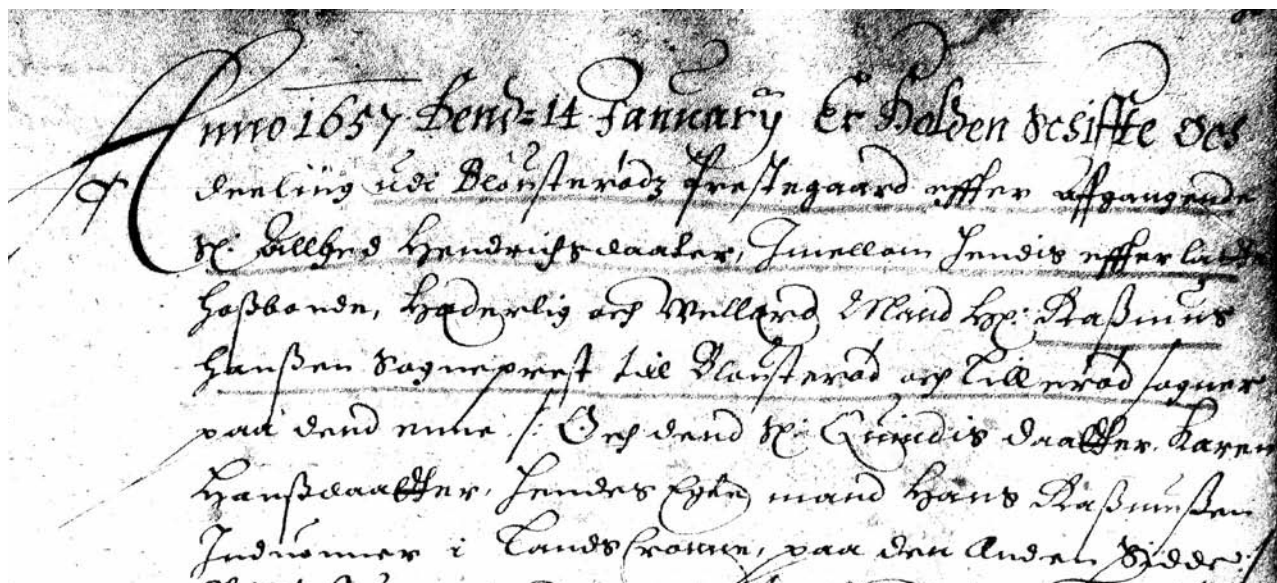 Anno 1657 Dend 14 Januarij Er Holden Schiffte Och
deeling udi Blousterødz Prestegaard effter affgangende
Sl: Allhed Hendrichsdaater, Imellom hendis effterladte
hoßbonde, Hæderlig och Wellærd Mand Hr: Raßmus
Hanßen Sogneprest till Blousterød och Lillerød sogner
paa dend enne /: Och dend Sl: Quindis daatter Karen
Hanßdaatter, hendes Egte mand Hans Raßmußen
Induonner i Landscronne, paa den Anden Sidde:/